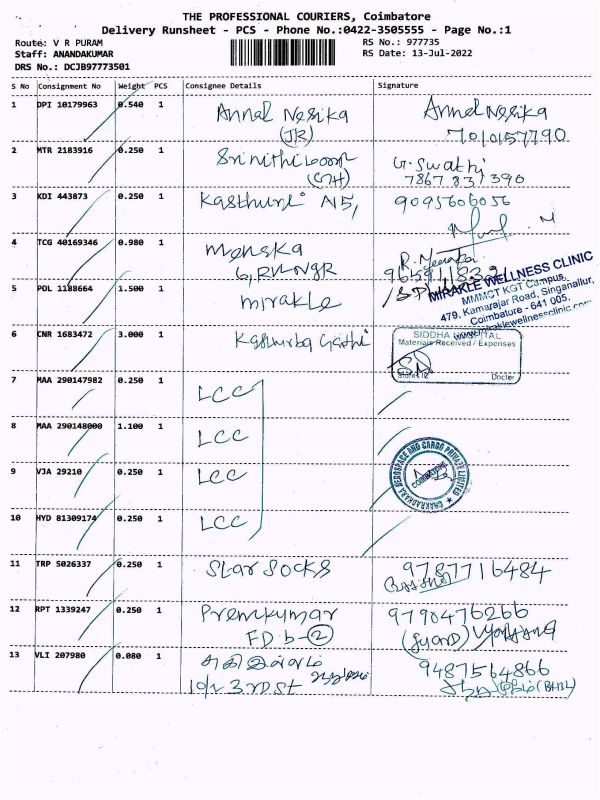 THE PROFESSIONAL COURIERS, Coimbatore
Delivery Runsheet - PCS - Phone No.:0422-3505555 - Page No.:1
Route: V R PURAM RS No.: 977735
Staff: ANANDAKUMAR RS Date: 13-Jul-2022
DRS No.: DCJB97773501
S No Consignment No Weight PCS Consignee Details Signature
1 DPI 10179963 0.540 1 Annal Nesika Annal Nesika
(JR) 7010157790
2 MTR 2183916 0.250 1 Srinithi G. Swathi
7867 831 390
3 KDI 443873 0.250 1 Kasthuri N5, 9095606056
4 TCG 40169346 0.980 1 Menaka R. Menaka
6, RV-NGR
5 POL 1188664 1.500 1 mirakle
MIRAKLE WELLNESS CLINIC
MMMCT KGT Campus,
479, Kamarajar Road, Singanallur,
Coimbatore - 641 005.
www.miraklewellnessclinic.com
6 CNR 1683472 3.000 1 Kasthurba Gandhi
SIDDHA HOSPITAL
Materials Received / Expenses
Stores IC Doctor
7 MAA 290147982 0.250 1 LCC
8 MAA 290148000 1.100 1 LCC
9 VJA 29210 0.250 1 LCC
CHAKRADHARA AEROSPACE AND CARGO PRIVATE LIMITED
COIMBATORE
10 HYD 81309174 0.250 1 LCC
11 TRP 5026337 0.250 1 Star Socks 9787716484
12 RPT 1339247 0.250 1 Premkumar 9790476266
F D b-2
13 VLI 207980 0.080 1 9487564866
10/2 3rd St